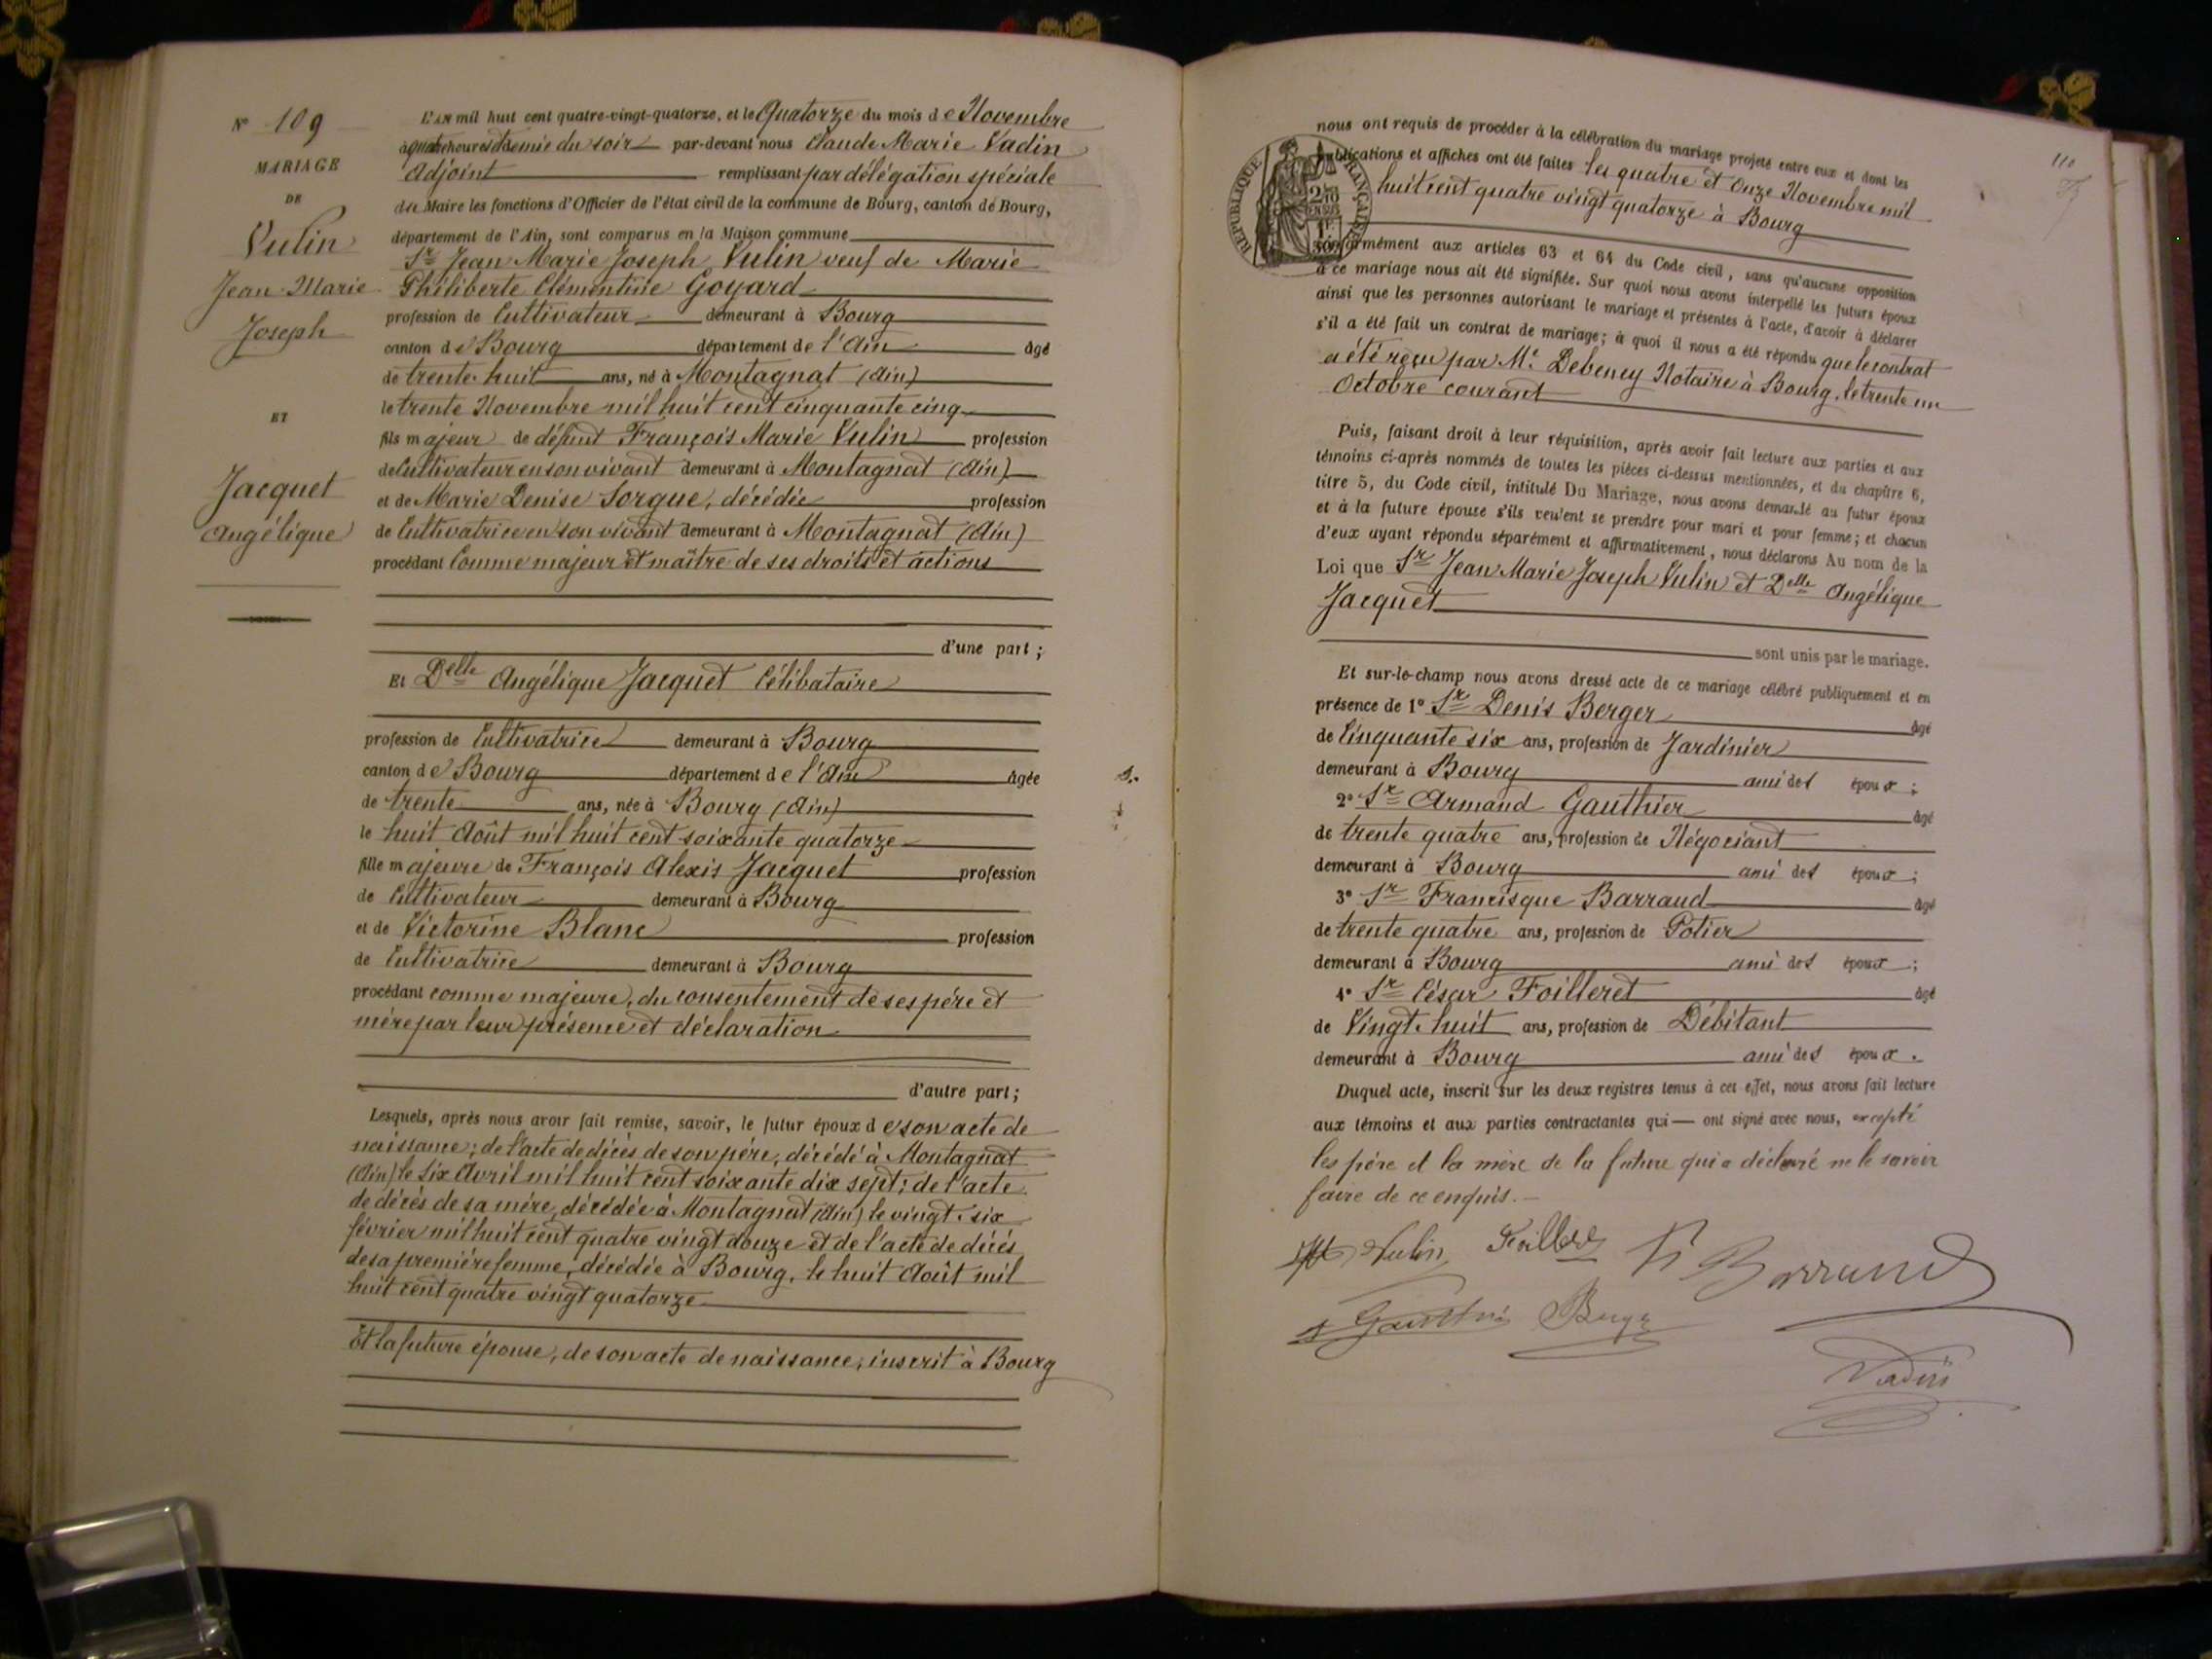 N° 109
MARIAGE
DE
Vulin
Jean-Marie
Joseph
ET
Jacquet
Angélique
L'an mil huit cent quatre-vingt-quatorze, et le Quatorze du mois de Novembre
à quatre heures et demie du soir par-devant nous Claude Marie Vadin
Adjoint remplissant par délégation spéciale
du Maire les fonctions d'Officier de l'état civil de la commune de Bourg, canton de Bourg,
département de l'Ain, sont comparus en la Maison commune
Sr Jean Marie Joseph Vulin veuf de Marie
Philiberte Clémentine Goyard
profession de Cultivateur demeurant à Bourg
canton de Bourg département de l'Ain âgé
de trente-huit ans, né à Montagnat (Ain)
le trente Novembre mil huit cent cinquante cinq
fils majeur de défunt François Marie Vulin profession
de Cultivateur en son vivant demeurant à Montagnat (Ain)
et de Marie Denise Sorgue, décédée profession
de Cultivatrice en son vivant demeurant à Montagnat (Ain)
procédant Comme majeur et maître de ses droits et actions
d'une part ;
Et Delle Angélique Jacquet Célibataire
profession de Cultivatrice demeurant à Bourg
canton de Bourg département de l'Ain âgée
de trente ans, née à Bourg (Ain)
le huit Août mil huit cent soixante quatorze
fille majeure de François Alexis Jacquet profession
de Cultivateur demeurant à Bourg
et de Victorine Blanc profession
de Cultivatrice demeurant à Bourg
procédant comme majeure, du consentement de ses père et
mère par leur présence et déclaration
d'autre part ;
Lesquels, après nous avoir fait remise, savoir, le futur époux de son acte de
naissance ; de l'acte de décès de son père, décédé à Montagnat
(Ain) le Six Avril mil huit cent soixante dix sept ; de l'acte
de décès de sa mère, décédée à Montagnat (Ain) le vingt-six
février mil huit cent quatre vingt douze et de l'acte de décès
de sa première femme, décédée à Bourg, le huit Août mil
huit cent quatre vingt quatorze
Et la future épouse, de son acte de naissance, inscrit à Bourg
110
RÉPUBLIQUE FRANÇAISE
nous ont requis de procéder à la célébration du mariage projeté entre eux et dont les
publications et affiches ont été faites les quatre et Onze Novembre mil
huit cent quatre vingt quatorze à Bourg
conformément aux articles 63 et 64 du Code civil, sans qu'aucune opposition
à ce mariage nous ait été signifiée. Sur quoi nous avons interpellé les futurs époux
ainsi que les personnes autorisant le mariage et présentes à l'acte, d'avoir à déclarer
s'il a été fait un contrat de mariage ; à quoi il nous a été répondu que le contrat
a été reçu par Me Debeney Notaire à Bourg, le trente un
Octobre courant
Puis, faisant droit à leur réquisition, après avoir fait lecture aux parties et aux
témoins ci-après nommés de toutes les pièces ci-dessus mentionnées, et du chapitre 6,
titre 5, du Code civil, intitulé Du Mariage, nous avons demandé au futur époux
et à la future épouse s'ils veulent se prendre pour mari et pour femme ; et chacun
d'eux ayant répondu séparément et affirmativement, nous déclarons Au nom de la
Loi que Sr Jean Marie Joseph Vulin et Delle Angélique
Jacquet
sont unis par le mariage.
Et sur-le-champ nous avons dressé acte de ce mariage célébré publiquement et en
présence de 1° Sr Denis Berger âgé
de Cinquante six ans, profession de Jardinier
demeurant à Bourg ami des époux ;
2° Sr Armand Gauthier âgé
de trente quatre ans, profession de Négociant
demeurant à Bourg ami des époux ;
3° Sr Francisque Barraud âgé
de trente quatre ans, profession de Potier
demeurant à Bourg ami des époux ;
4° Sr César Foilleret âgé
de Vingt-huit ans, profession de Débitant
demeurant à Bourg ami des époux.
Duquel acte, inscrit sur les deux registres tenus à cet effet, nous avons fait lecture
aux témoins et aux parties contractantes qui — ont signé avec nous, excepté
les père et la mère de la future qui a déclaré ne le savoir
faire de ce enquis. —
Vulin Foilleret Barraud
Gauthier Berger
Vadin